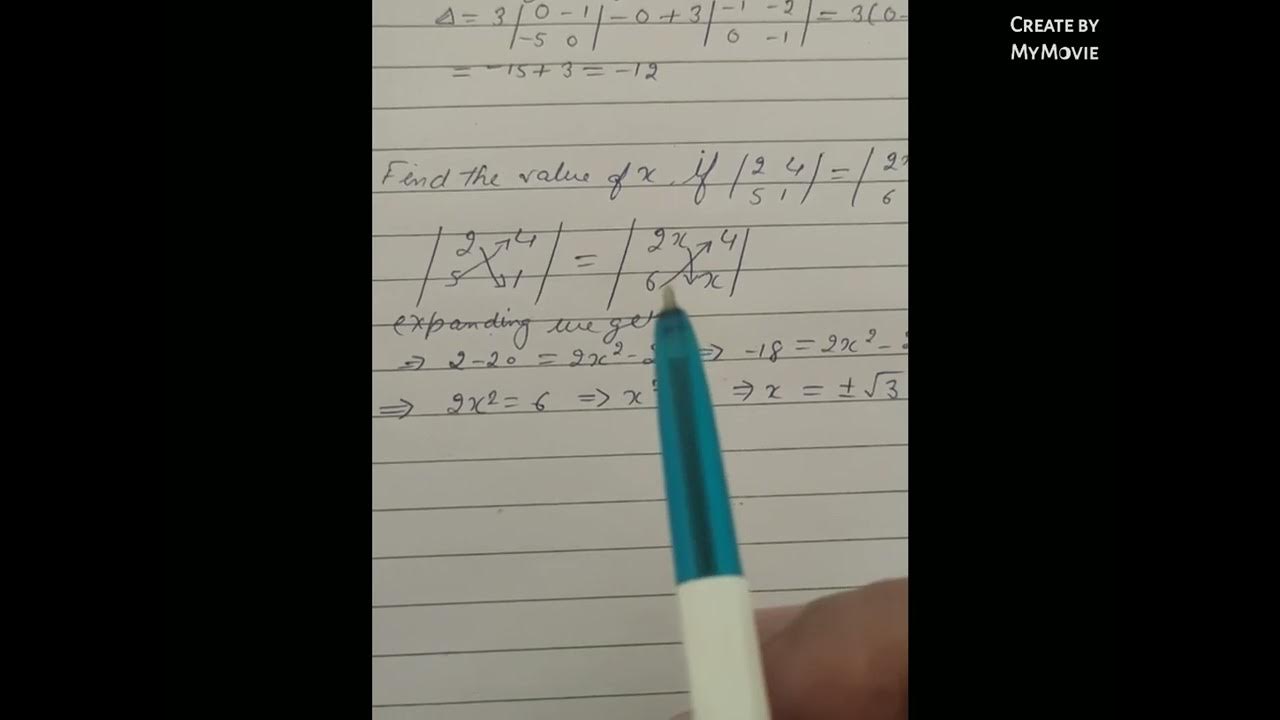 Δ = 3 | 0 -1 | - 0 + 3 | -1 -2 | = 3(0-
-5 0 0 -1
= -15 + 3 = -12
Find the value of x if | 2 4 | = | 2x
5 1 6
| 2 4 | = | 2x 4 |
5 1 6 x
expanding we get
⇒ 2-20 = 2x² - 2 ⇒ -18 = 2x² - 2
⇒ 2x² = 6 ⇒ x² ⇒ x = ±√3
CREATE BY
MYMOVIE